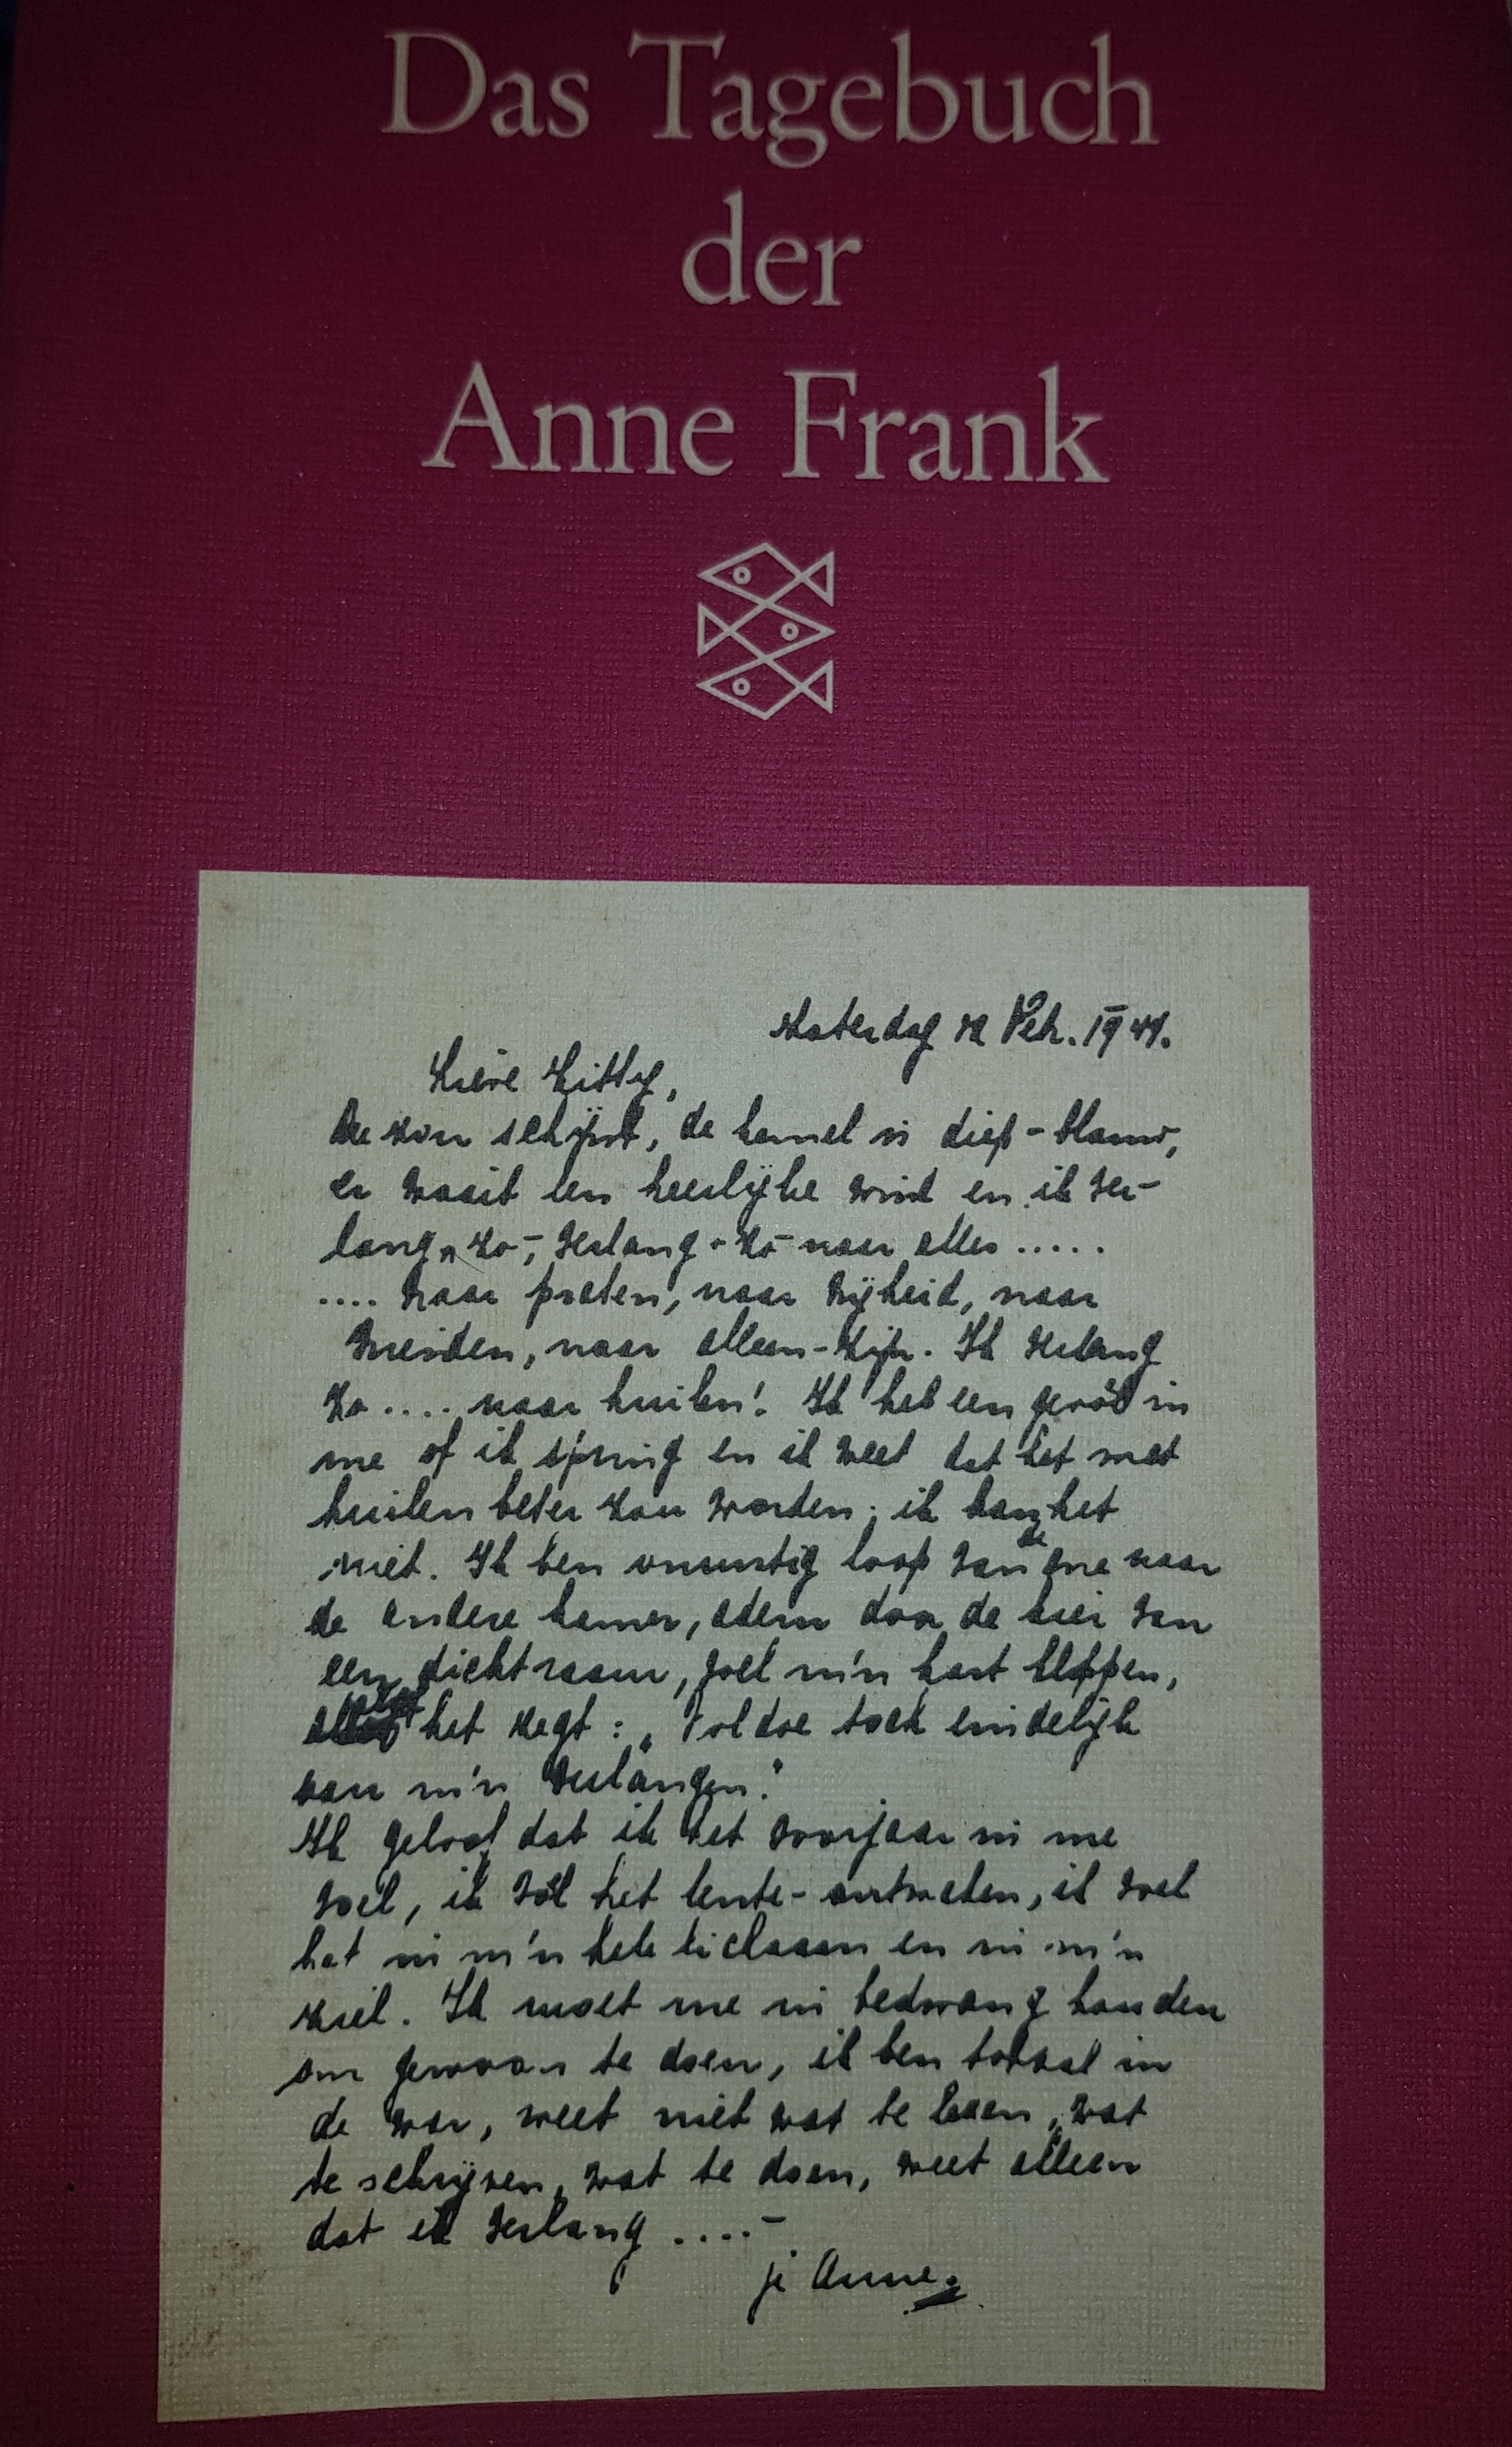 Das Tagebuch
der
Anne Frank
Zaterdag 12 Febr. 1944.
Lieve Kitty,
De zon schijnt, de hemel is diep-blauw,
er waait een heerlijke wind en ik ver-
lang zo-, verlang-zo- naar alles.....
.... Naar praten, naar vrijheid, naar
vrienden, naar alleen-zijn. Ik verlang
zo.... naar huilen! Ik heb een gevoel in
me of ik spring en ik weet dat het met
huilen beter zou worden; ik kan het
niet. Ik ben onrustig loop van de ene naar
de andere kamer, adem door de kier van
een dicht raam, voel m'n hart kloppen,
alsof het zegt: „Voldoe toch eindelijk
aan m'n verlangen."
Ik geloof dat ik het voorjaar in me
voel, ik voel het lente-ontwaken, ik voel
het in m'n hele lichaam en in m'n
ziel. Ik moet me in bedwang houden
om gewoon te doen, ik ben totaal in
de war, weet niet wat te lezen, wat
te schrijven, wat te doen, weet alleen
dat ik verlang ....-
je Anne.